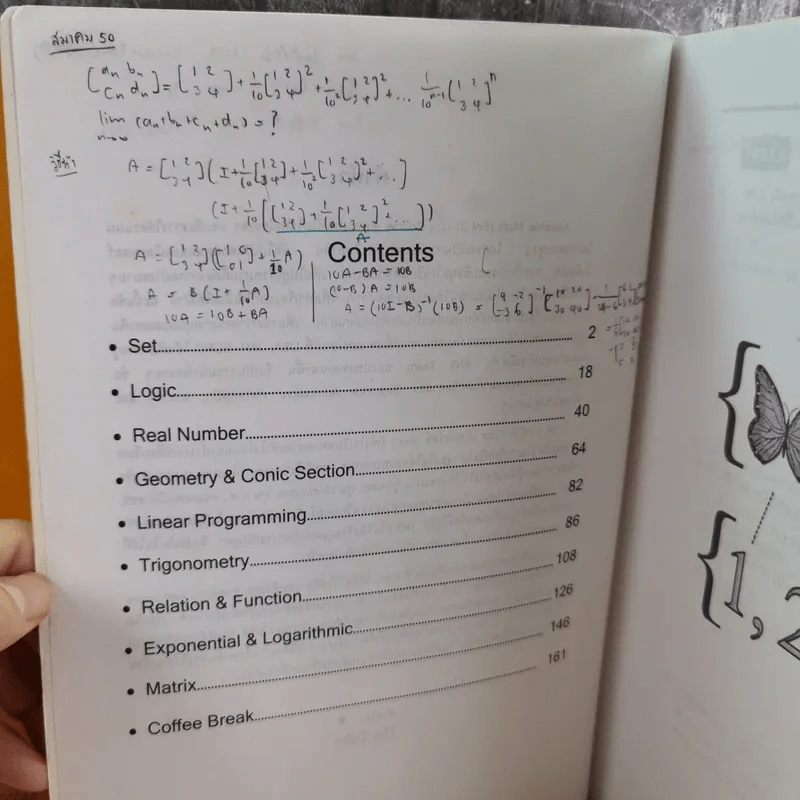 สมาคม 50
[aₙ bₙ cₙ dₙ] = [1 2 3 4] + 1/10 [1 2 3 4]² + 1/10² [1 2 3 4]² + ... 1/10ⁿ⁻¹ [1 2 3 4]ⁿ
lim n→∞ (aₙ+bₙ+cₙ+dₙ) = ?
วิธีทำ A = [1 2 3 4] (I + 1/10 [1 2 3 4] + 1/10² [1 2 3 4]² + ...]
(I + 1/10 [[1 2 3 4] + 1/10 [1 2 3 4]² + ...])
A
A = [1 2 3 4] ([1 0 0 1] + 1/10 A)
A = B (I + 1/10 A)
10A = 10B + BA
Contents
10A - BA = 10B
(10-B) A = 10B
A = (10I - B)⁻¹ (10B) = [9 -2 -3 6]⁻¹ [10 20 30 40]
• Set 2
• Logic 18
• Real Number 40
• Geometry & Conic Section 64
• Linear Programming 82
• Trigonometry 86
• Relation & Function 108
• Exponential & Logarithmic 126
• Matrix 146
• Coffee Break 161
{
{1, 2